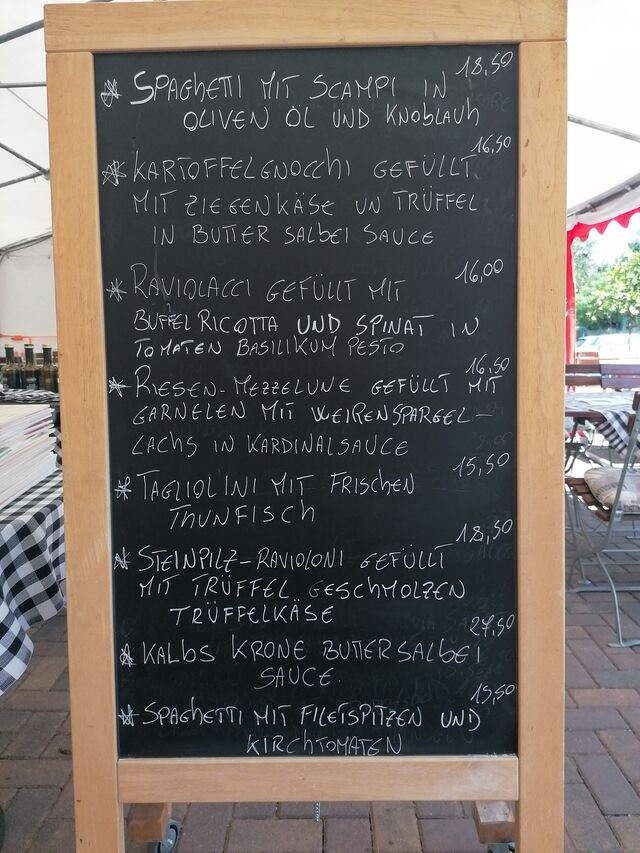 * SPAGHETTI MIT SCAMPI IN 18,50
OLIVEN ÖL UND KNOBLAUH
* KARTOFFELGNOCCHI GEFÜLLT 16,50
MIT ZIEGENKÄSE UN TRÜFFEL
IN BUTTER SALBEI SAUCE
* RAVIOLACCI GEFÜLLT MIT 16,00
BUFFEL RICOTTA UND SPINAT IN
TOMATEN BASILIKUM PESTO
* RIESEN-MEZZELUNE GEFÜLLT MIT 16,50
GARNELEN MIT WEIßENSPARGEL-
LACHS IN KARDINALSAUCE
* TAGLIOLINI MIT FRISCHEN 15,50
THUNFISCH
* STEINPILZ-RAVIOLONI GEFÜLLT 18,50
MIT TRÜFFEL GESCHMOLZEN
TRÜFFELKÄSE
* KALBS KRONE BUTTERSALBEI 27,50
SAUCE.
* SPAGHETTI MIT FILETSPITZEN UND 15,50
KIRCHTOMATEN